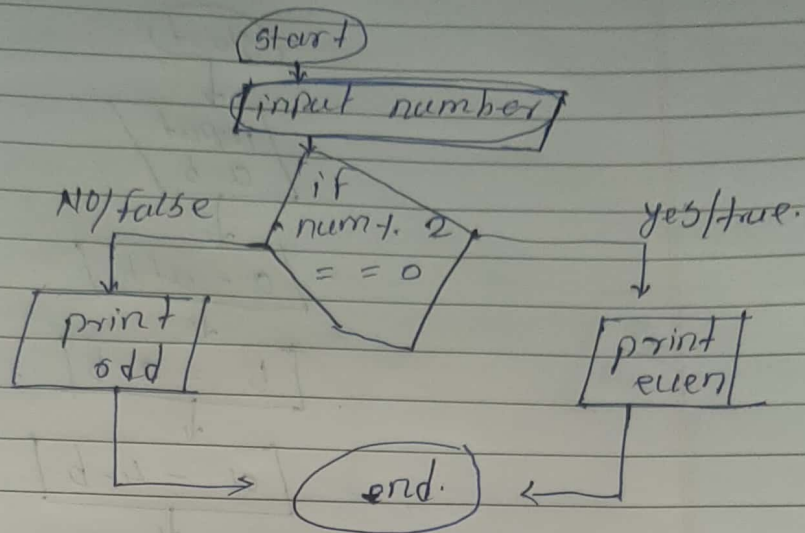 start
input number
if
num % 2
= = 0
No/false
yes/true.
print
odd
print
even
end.